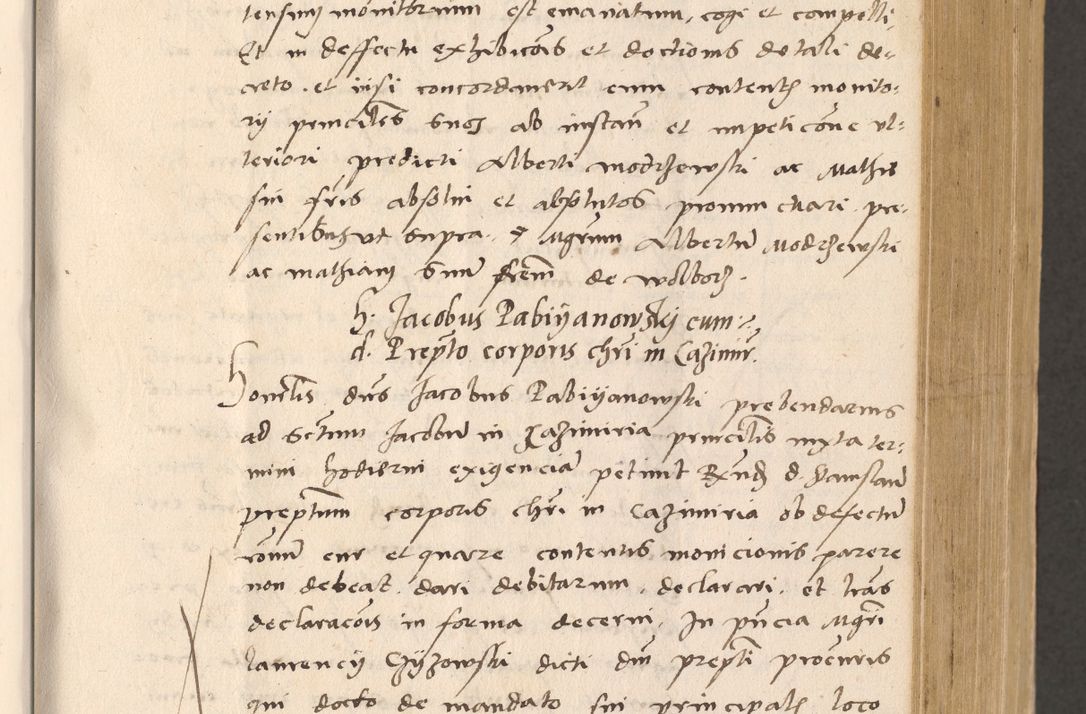 tensus monitorium est emanatum, cogi et compelli,
Et in deffectu exhibicois et doctionis de tali de-
creto et nisi concordaverit cum contentis monito-
rij principales suos ab instan et impeticone ul-
teriori predicti Alberti Modrzewski ac Mathie
sui fris absolvi et absolutos pronunctiari pre-
sentibus ut supra. Mgrum Albertum Modrzewski
ac Mathiam suum frem de Wolborz.
h. Jacobus Pabiyanowski cum
d. Prepto corporis chri in Cazimir.
Honorlis dns Jacobus Pabiyanowski prebendarius
ad Sctum Jacobum in Kazimiria principalis iuxta ter-
mini hodierni exigenciam petivit Rndum d. Stanislaum
preptum corporis chri in Cazimiria ob defectum
ronum cur et quare contentis monicionis parere
non debeat dari debitarum, declarari, et lras
declaracois in forma decerni, In pncia Mgri
Laurency Czyzowski dicti dni prepti procuris
qui docto de mandato sui principalis loco